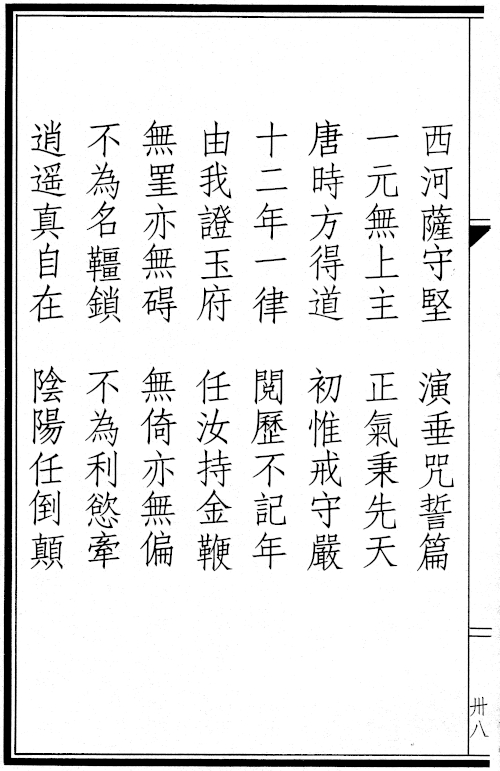 西河薩守堅　演垂咒誓篇
一元無上主　正氣秉先天
唐時方得道　初惟戒守嚴
十二年一律　閱歷不記年
由我證玉府　任汝持金鞭
無罣亦無碍　無倚亦無偏
不為名韁鎖　不為利慾牽
逍遥真自在　陰陽任倒顛
卅八